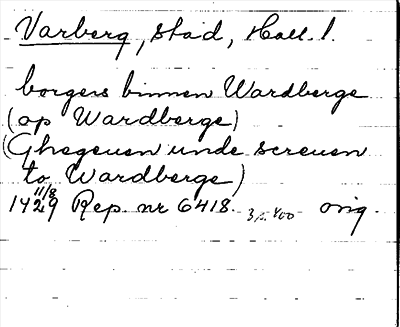 Varberg, stad, Hall. l.
borgers binnen Wardberge
(op Wardberge)
(Ghegeuen unde screuen
to Wardberge)
11/8
1429 Rep. nr 6418. orig.